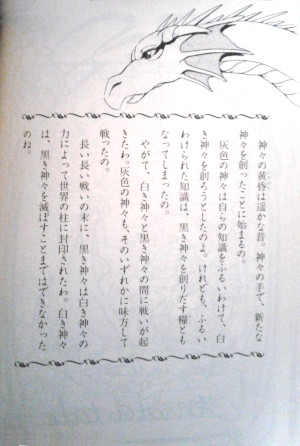 神々の黄昏は遥かな昔。神々の手で、新たな
神々を創ったことに始まるの。
灰色の神々は自らの知識をふるいわけて、白
き神々を創ろうとしたのよ。けれども、ふるい
わけられた知識は、黒き神々を創りだす糧とも
なってしまったの。
やがて、白き神々と黒き神々の間に戦いが起
きたわ。灰色の神々も、そのいずれかに味方して
戦ったの。
長い長い戦いの末に、黒き神々は白き神々の
力によって世界の柱に封印されたわ。白き神々
は、黒き神々を滅ぼすことまではできなかった
のね。